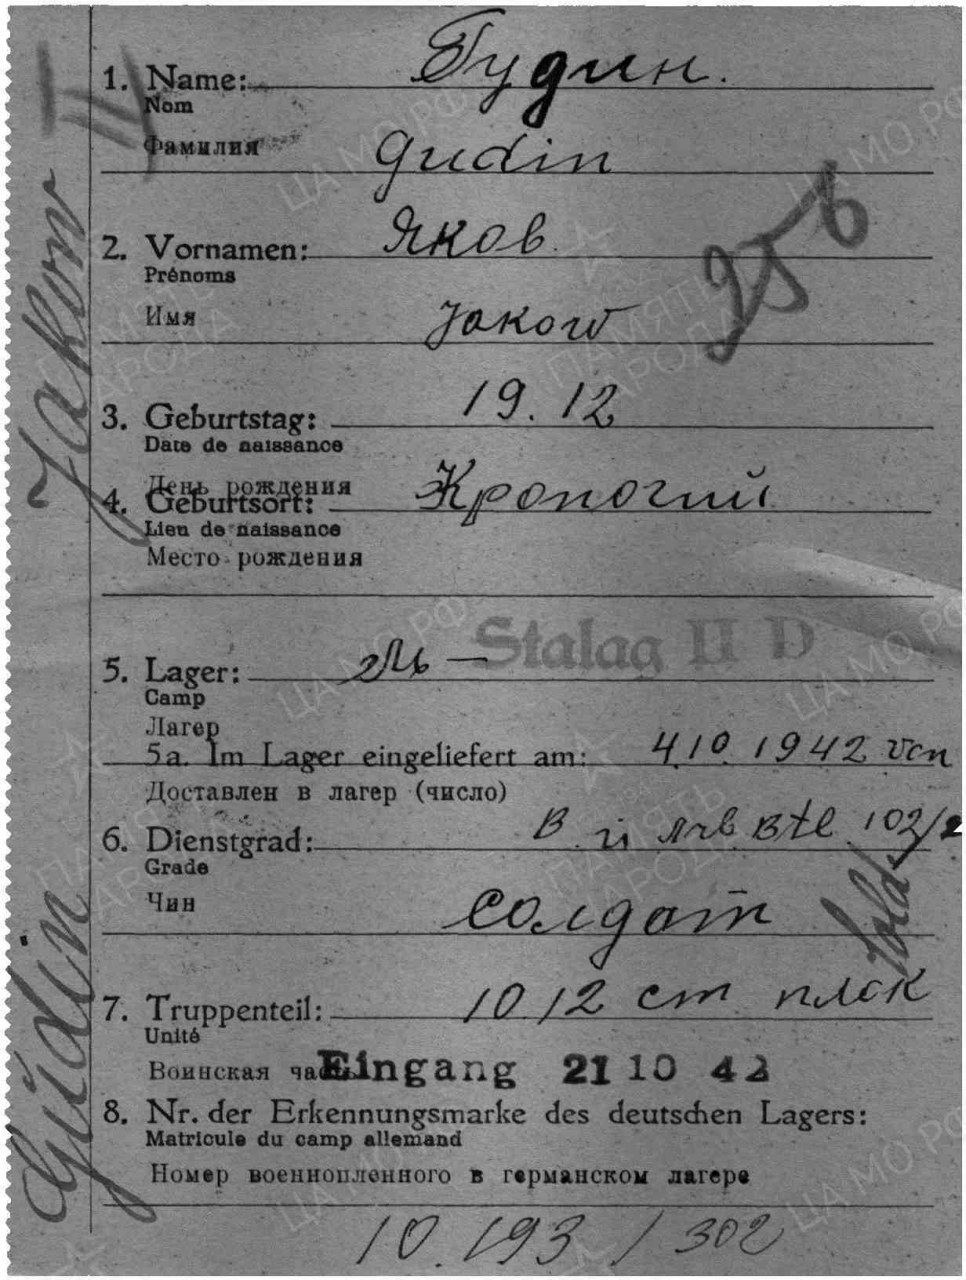 Jakow
Gudin
II
1. Name: Гудин.
Nom
Фамилия Gudin
256
2. Vornamen: Яков
Prénoms
Имя Jakow
3. Geburtstag: 19.12
Date de naissance
День рождения
4. Geburtsort:
Lieu de naissance
Место рождения
Stalag II D
5. Lager:
Camp
Лагер
5a. Im Lager eingeliefert am: 4.10.1942 von
Доставлен в лагер (число)
6. Dienstgrad: Btl 102/
Grade
Чин солдат
Sold.
7. Truppenteil: 10.12 ст
Unité
Воинская часть Eingang 21 10 42
8. Nr. der Erkennungsmarke des deutschen Lagers:
Matricule du camp allemand
Номер военнопленного в германском лагере
10.193 / 302
ЦА МО РФ
ПАМЯТЬ
НАРОДА